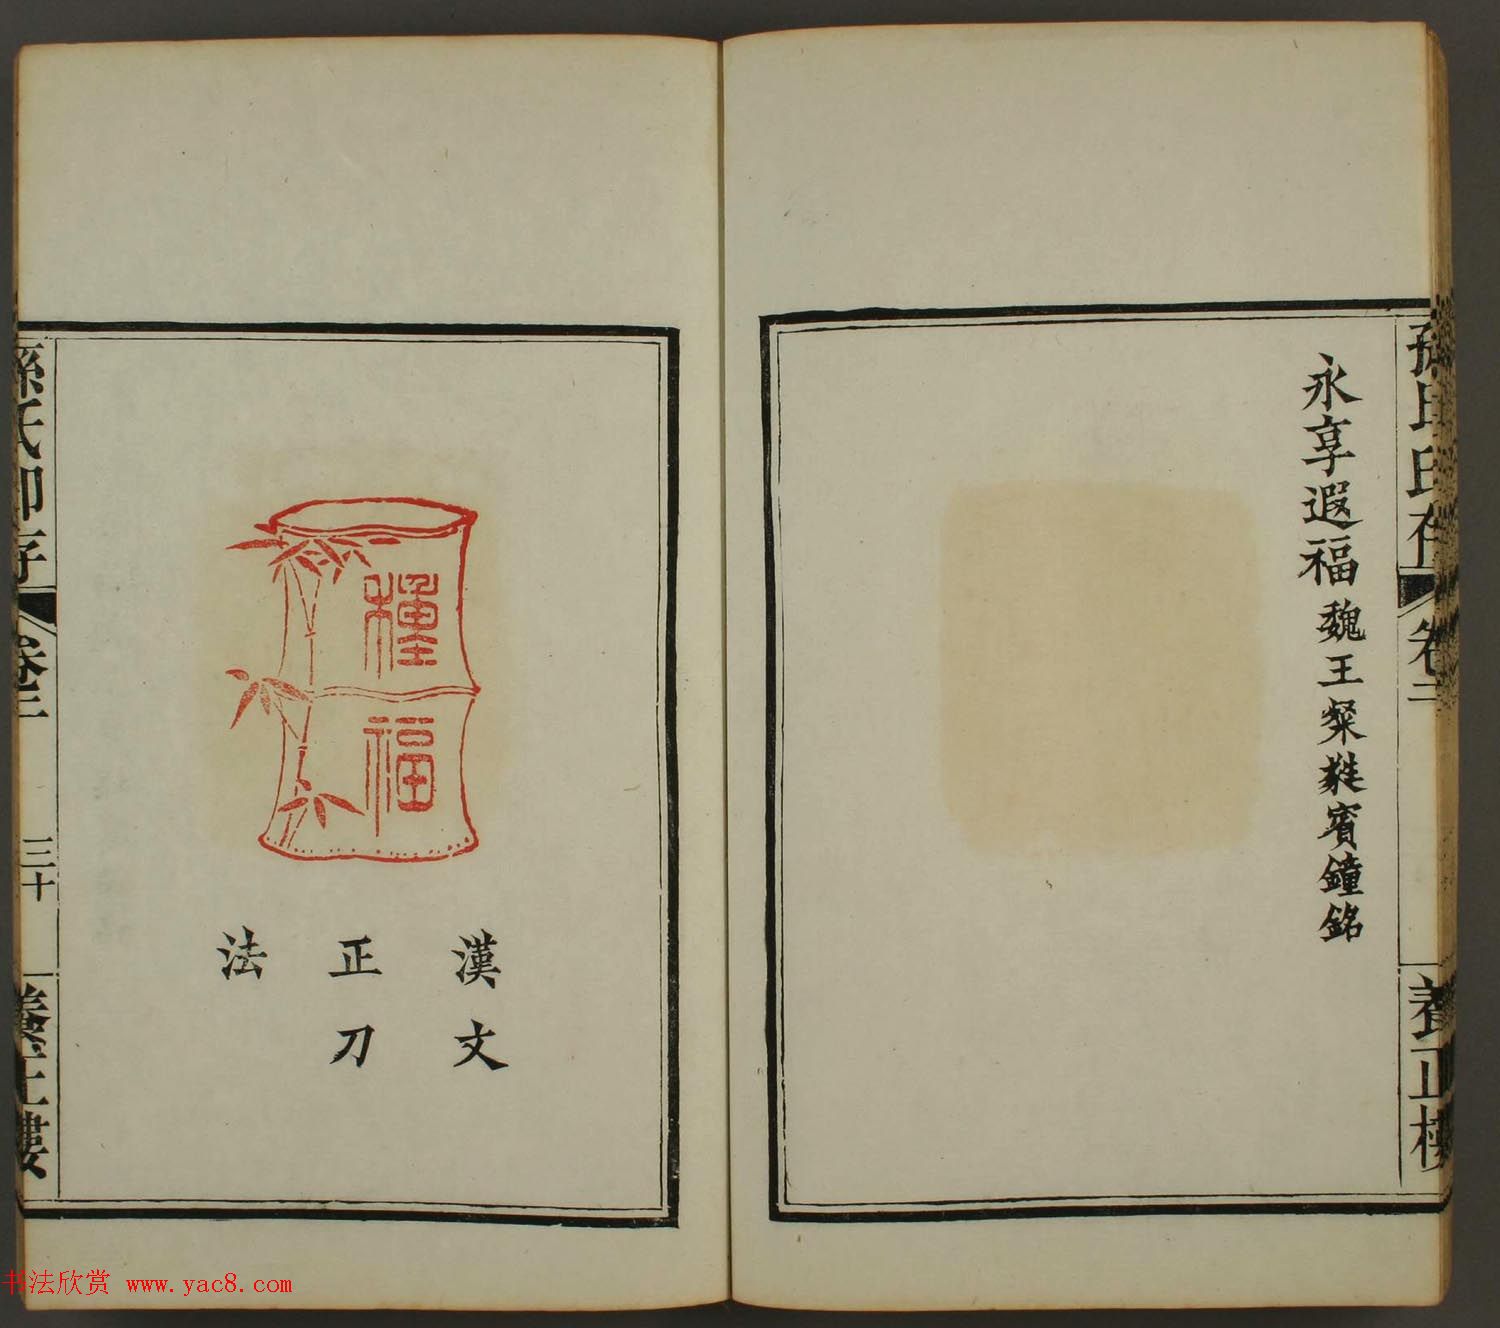 孫氏印存 卷二
養正樓
永享遐福 魏王粲蕤賓鐘銘
種福
漢文
正刀
法
孫氏印存 卷三
三十
養正樓
书法欣赏 www.yac8.com